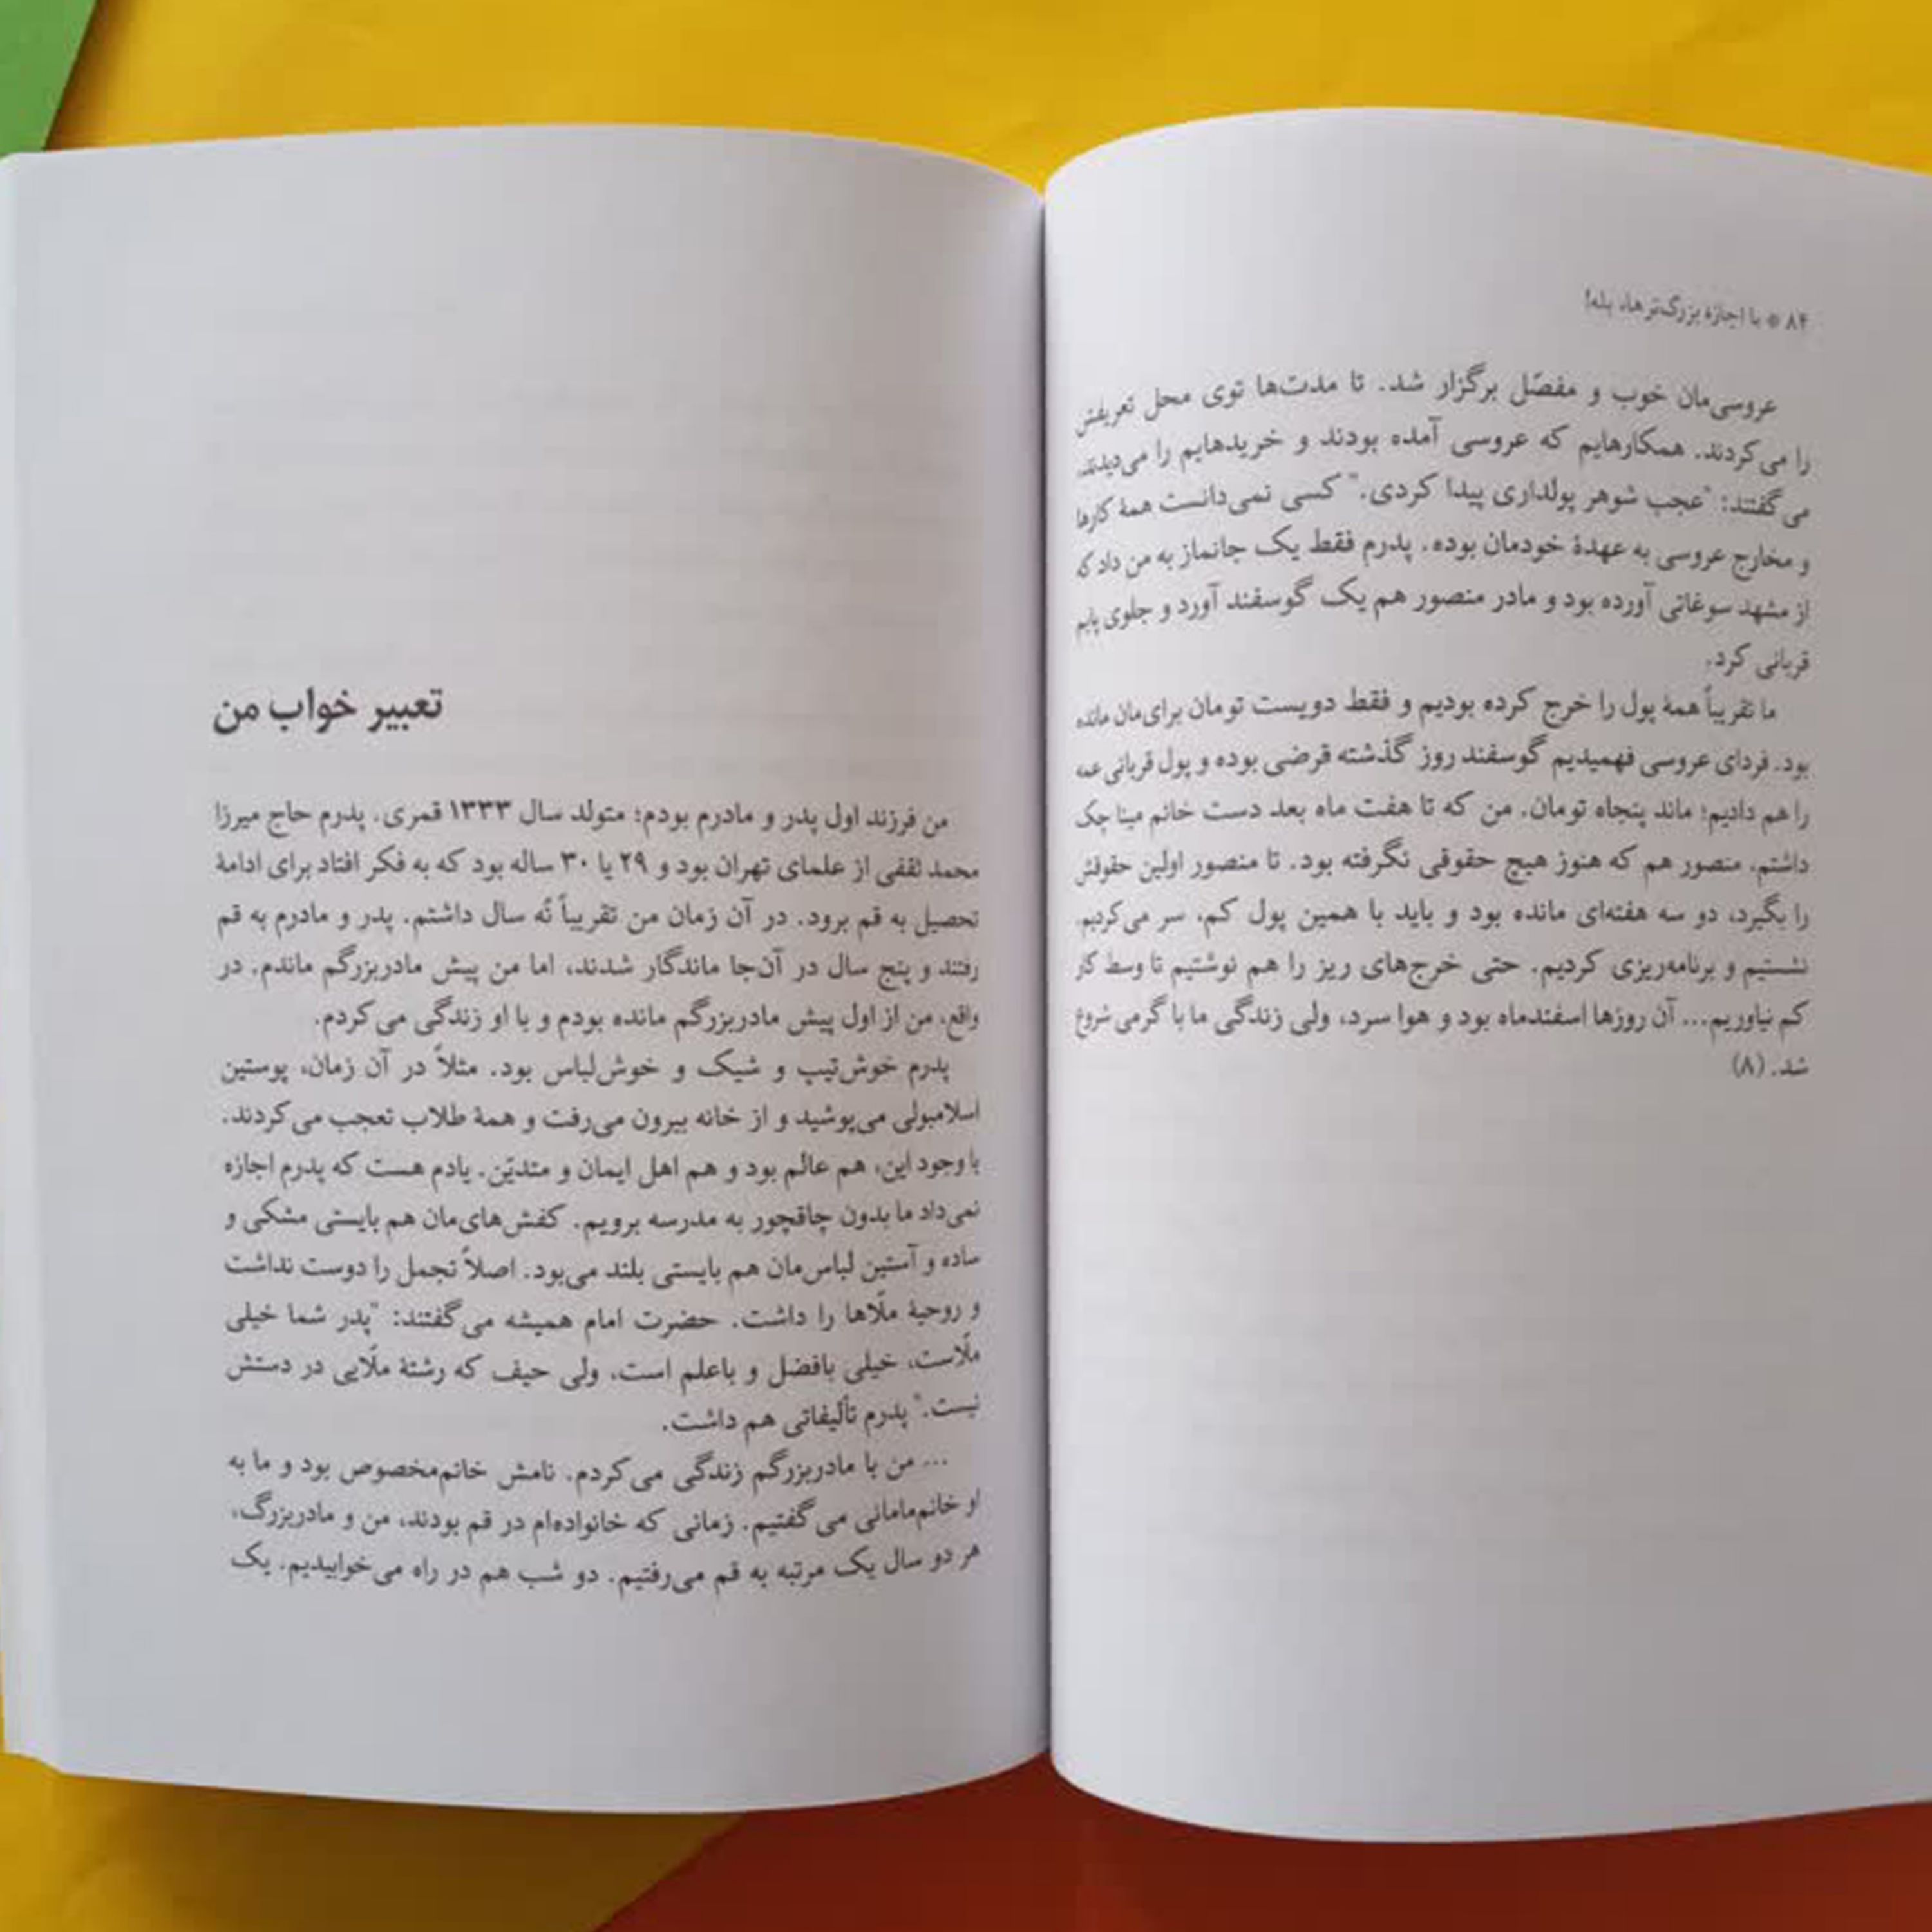 ۸۴ * با اجازهٔ بزرگ‌ترها، بله!
عروسی‌مان خوب و مفصّل برگزار شد. تا مدت‌ها توی محل تعریفش
را می‌کردند. همکارهایم که عروسی آمده بودند و خریدهایم را می‌دیدند،
می‌گفتند: "عجب شوهر پولداری پیدا کردی." کسی نمی‌دانست همهٔ کارها
و مخارج عروسی به عهدهٔ خودمان بوده. پدرم فقط یک جانماز به من داد که
از مشهد سوغاتی آورده بود و مادر منصور هم یک گوسفند آورد و جلوی پایم
قربانی کرد.
ما تقریباً همهٔ پول را خرج کرده بودیم و فقط دویست تومان برای‌مان مانده
بود. فردای عروسی فهمیدیم گوسفند روز گذشته قرضی بوده و پول قربانی عمه
را هم دادیم؛ ماند پنجاه تومان. من که تا هفت ماه بعد دست خانم مینا چک
داشتم، منصور هم که هنوز هیچ حقوقی نگرفته بود. تا منصور اولین حقوقش
را بگیرد، دو سه هفته‌ای مانده بود و باید با همین پول کم، سر می‌کردیم.
نشستیم و برنامه‌ریزی کردیم. حتی خرج‌های ریز را هم نوشتیم تا وسط کار
کم نیاوریم... آن روزها اسفندماه بود و هوا سرد، ولی زندگی ما با گرمی شروع
شد. (۸)
تعبیر خواب من
من فرزند اول پدر و مادرم بودم؛ متولد سال ۱۳۳۳ قمری. پدرم حاج میرزا
محمد ثقفی از علمای تهران بود و ۲۹ یا ۳۰ ساله بود که به فکر افتاد برای ادامهٔ
تحصیل به قم برود. در آن زمان من تقریباً نُه سال داشتم. پدر و مادرم به قم
رفتند و پنج سال در آن‌جا ماندگار شدند، اما من پیش مادربزرگم ماندم. در
واقع، من از اول پیش مادربزرگم مانده بودم و با او زندگی می‌کردم.
پدرم خوش‌تیپ و شیک و خوش‌لباس بود. مثلاً در آن زمان، پوستین
اسلامبولی می‌پوشید و از خانه بیرون می‌رفت و همهٔ طلاب تعجب می‌کردند.
با وجود این، هم عالم بود و هم اهل ایمان و متدیّن. یادم هست که پدرم اجازه
نمی‌داد ما بدون چاقچور به مدرسه برویم. کفش‌های‌مان هم بایستی مشکی و
ساده و آستین لباس‌مان هم بایستی بلند می‌بود. اصلاً تجمل را دوست نداشت
و روحیهٔ ملّاها را داشت. حضرت امام همیشه می‌گفتند: "پدر شما خیلی
ملّاست، خیلی بافضل و باعلم است، ولی حیف که رشتهٔ ملّایی در دستش
نیست." پدرم تألیفاتی هم داشت.
... من با مادربزرگم زندگی می‌کردم. نامش خانم‌مخصوص بود و ما به
او خانم‌مامانی می‌گفتیم. زمانی که خانواده‌ام در قم بودند، من و مادربزرگ،
هر دو سال یک مرتبه به قم می‌رفتیم. دو شب هم در راه می‌خوابیدیم. یک